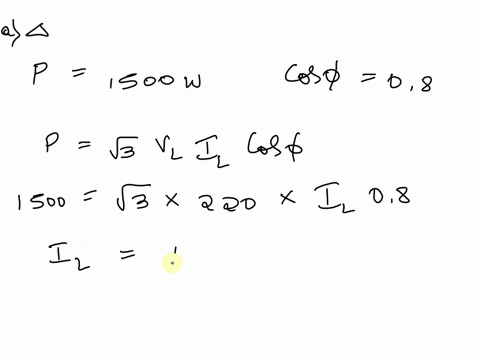 a) Δ
P = 1500 W Cosϕ = 0.8
P = √3 V_L I_L Cosϕ
1500 = √3 × 220 × I_L 0.8
I_L =